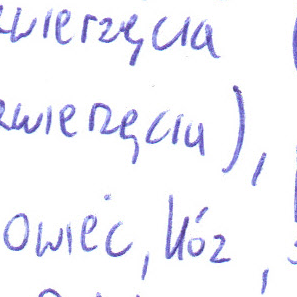 zwierzęcia (
zwierzęciu),
owiec, kóz,